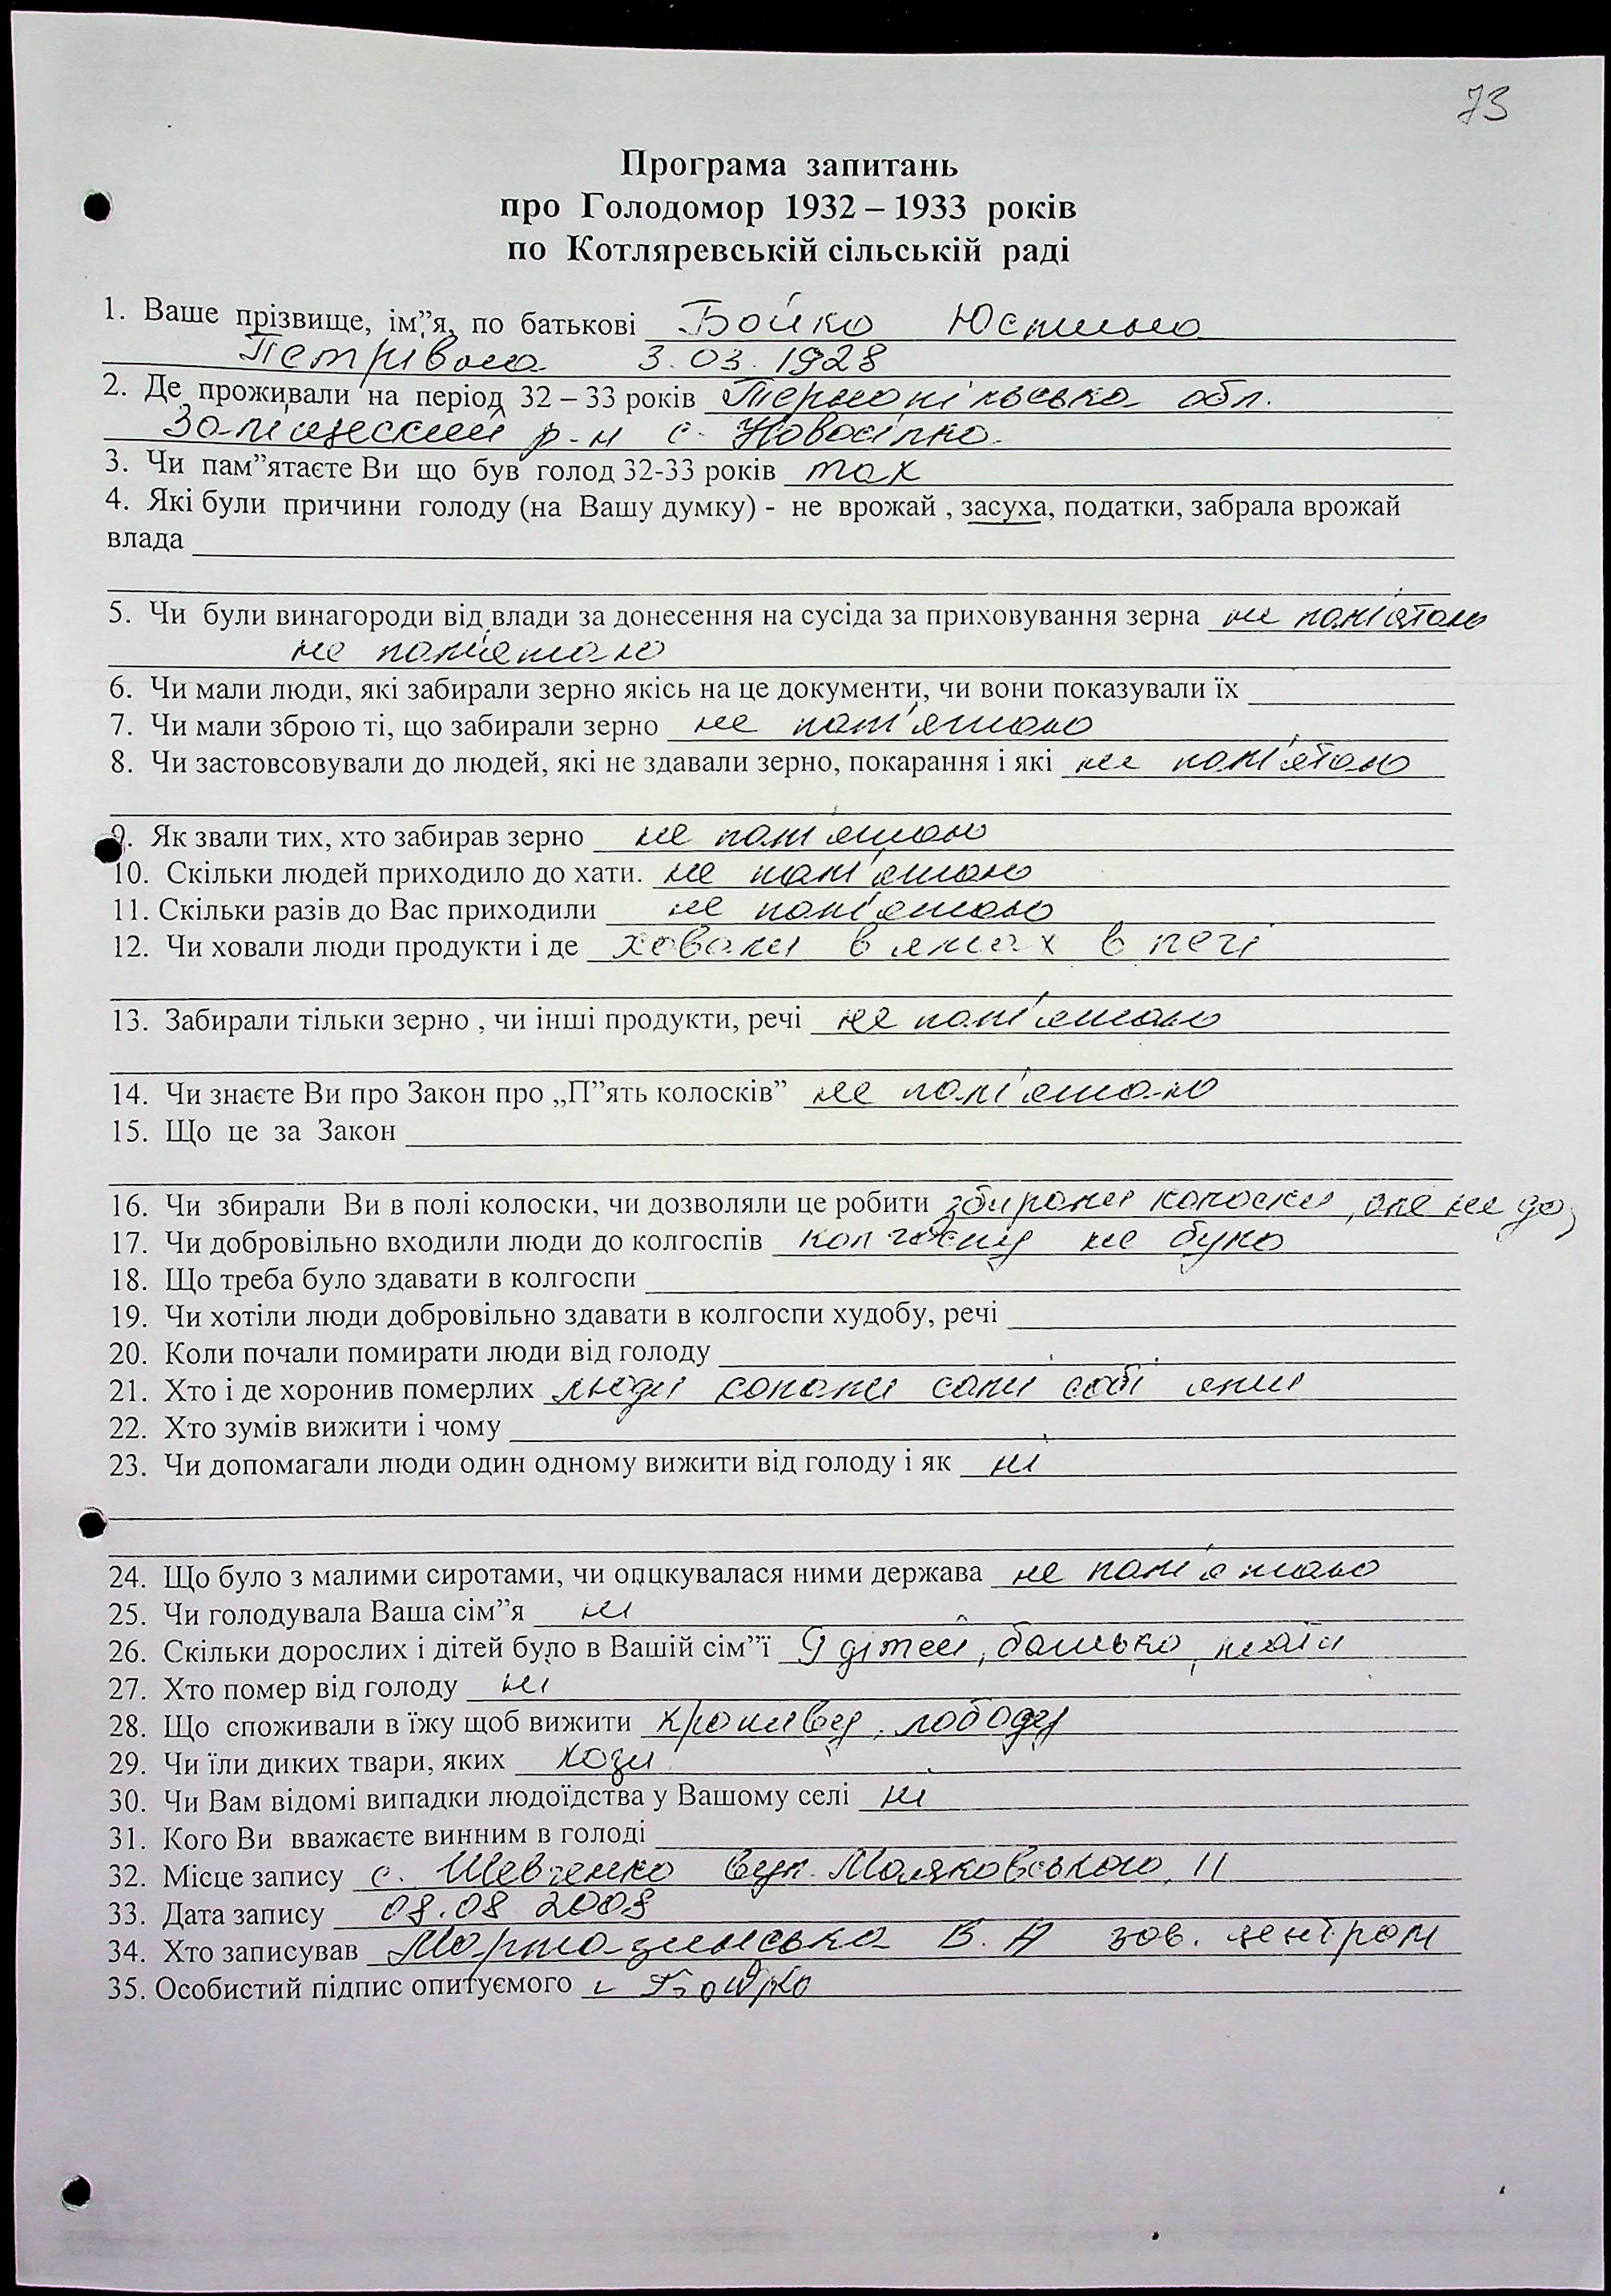 73
Програма запитань
про Голодомор 1932 – 1933 років
по Котляревській сільській раді
1. Ваше прізвище, ім"я, по батькові Бойко Юстина
Петрівна 3.03.1928
2. Де проживали на період 32 – 33 років Тернопільська обл.
Заліщеский р-н с. Новосілка
3. Чи пам"ятаєте Ви що був голод 32-33 років так
4. Які були причини голоду (на Вашу думку) - не врожай , засуха, податки, забрала врожай
влада
5. Чи були винагороди від влади за донесення на сусіда за приховування зерна не пам'ятаю
не пам'ятаю
6. Чи мали люди, які забирали зерно якісь на це документи, чи вони показували їх
7. Чи мали зброю ті, що забирали зерно не пам'ятаю
8. Чи застовсовували до людей, які не здавали зерно, покарання і які не пам'ятаю
9. Як звали тих, хто забирав зерно не пам'ятаю
10. Скільки людей приходило до хати. не пам'ятаю
11. Скільки разів до Вас приходили не пам'ятаю
12. Чи ховали люди продукти і де ховали в ямах в печі
13. Забирали тільки зерно , чи інші продукти, речі не пам'ятаю
14. Чи знаєте Ви про Закон про „П"ять колосків" не пам'ятаю
15. Що це за Закон
16. Чи збирали Ви в полі колоски, чи дозволяли це робити збирали колоски, але не
17. Чи добровільно входили люди до колгоспів колгоспу не було
18. Що треба було здавати в колгоспи
19. Чи хотіли люди добровільно здавати в колгоспи худобу, речі
20. Коли почали помирати люди від голоду
21. Хто і де хоронив померлих люди копали самі собі ями
22. Хто зумів вижити і чому
23. Чи допомагали люди один одному вижити від голоду і як ні
24. Що було з малими сиротами, чи опцкувалася ними держава не пам'ятаю
25. Чи голодувала Ваша сім"я ні
26. Скільки дорослих і дітей було в Вашій сім"ї 9 дітей, батько, мати
27. Хто помер від голоду ні
28. Що споживали в їжу щоб вижити кропиву, лободу
29. Чи їли диких твари, яких кози
30. Чи Вам відомі випадки людоїдства у Вашому селі ні
31. Кого Ви вважаєте винним в голоді
32. Місце запису с. Шевченко вул. Маяковського, 11
33. Дата запису 08.08 2008
34. Хто записував В. А зав. центром
35. Особистий підпис опитуємого Бойко